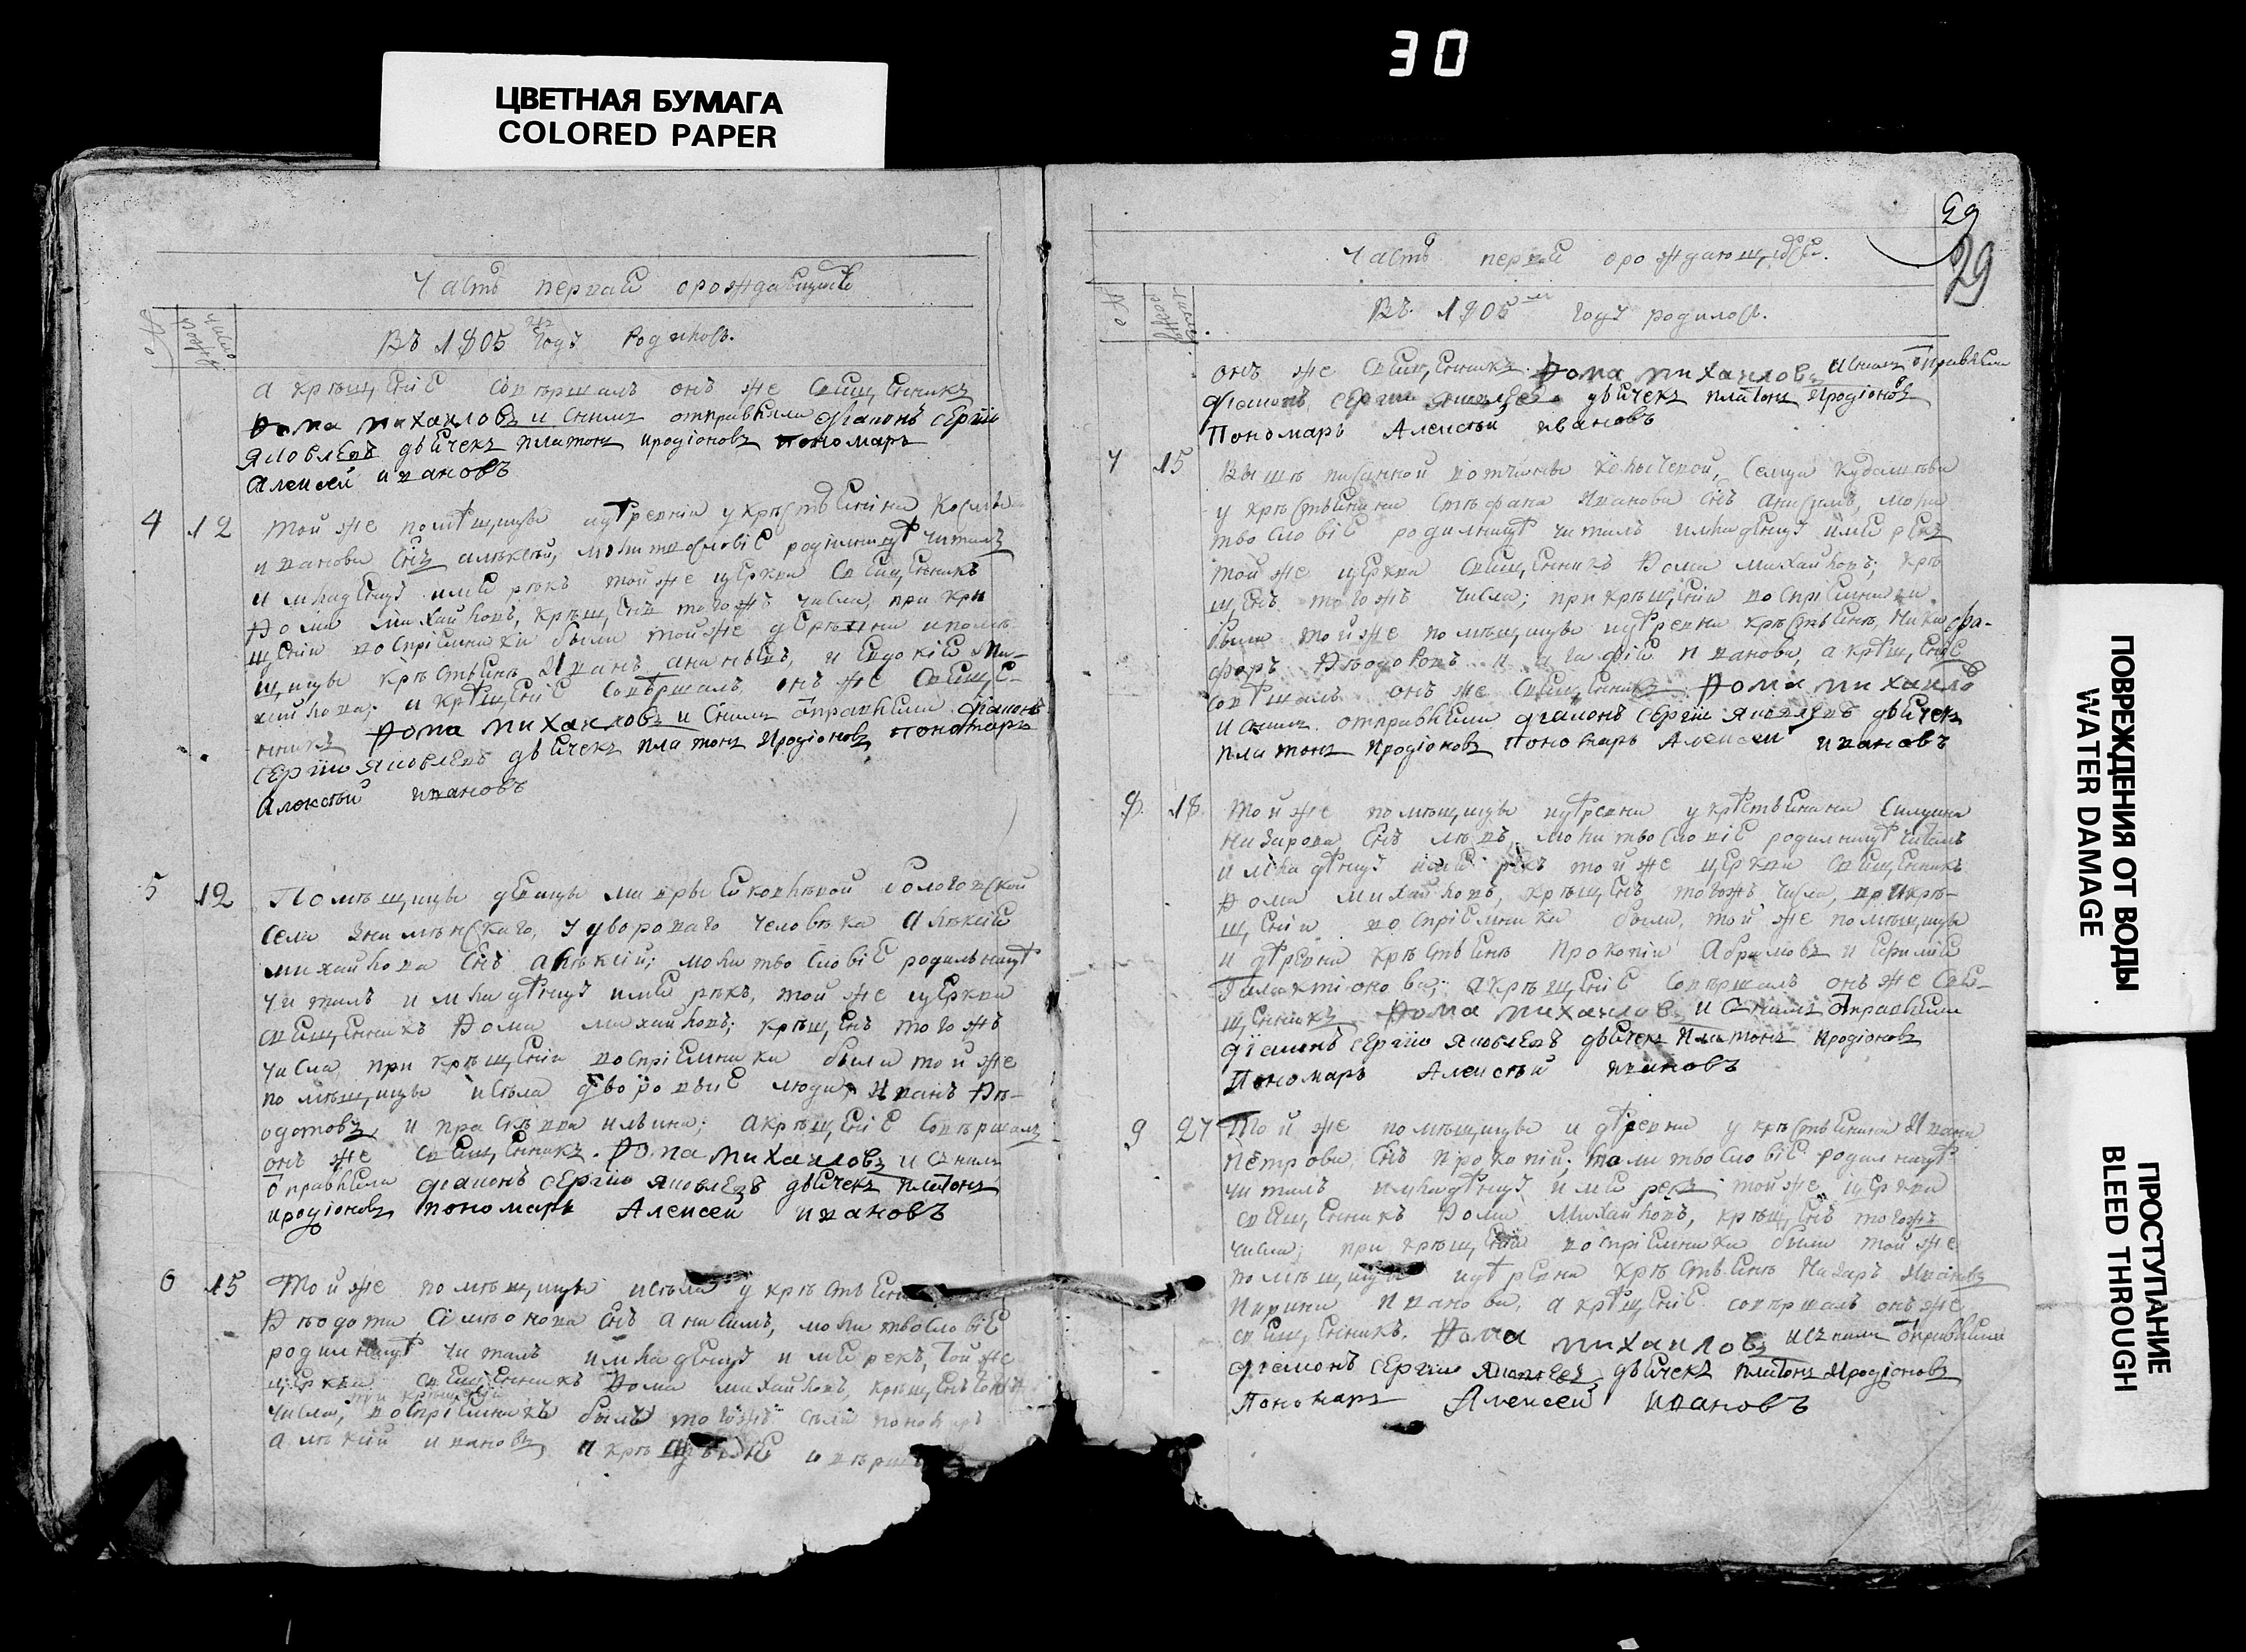 30
ЦВЕТНАЯ БУМАГА
COLORED PAPER
Часть первая о рождавшихся
№
число рожд.
Въ 1805 годѣ родилось.
а крѣщеніе совѣршалъ онъ же священникъ
Фома михаиловъ и снимъ отправляли діаконъ сѣргіи
Яковлевъ дьячекъ платонъ иродіоновъ пономарь
Алексей ивановъ
4 12 той же помѣщицы у крѣстьянина Космы
иванова снъ алѣксѣй, молитвословіе родилницѣ читалъ
и младенцу имя рѣкъ той же цѣркви священникъ
Фома михайловъ, крѣщенъ тогожъ числа, при кре
щеніи воспріемники были той же деревни и помѣ
щицы крѣстьянъ Иванъ ананьевъ, и Евдокіе ми-
хайлова; и крѣщеніе совѣршалъ онъ же свяще-
нникъ Фома михаиловъ и снимъ отправляли діаконъ
сергіи Яковлевъ дьячекъ платонъ Иродіоновъ пономарь
Алексѣй ивановъ
5 12 Помѣщицы девицы
села знамѣнскаго, у двороваго человѣка Алѣксія
михайлова снъ алѣксій; молитвословіе родильницѣ
читалъ и младѣнцу имя рѣкъ, той же цѣркви
священникъ Фома михайловъ; крѣщенъ тогожъ
числа при крѣщеніи воспріемники были той же
помѣщицы исѣла дворовые люди, Иванъ Фѣ-
одотовъ, и прасковва ильина; а крѣщеніе совѣршалъ
онъ же священникъ. Фома михаиловъ и снимъ
отправляли діаконъ сѣргіи яковлевъ дьячекъ платонъ
иродіоновъ пономарь Алексей ивановъ
6 15 Той же помѣщицы исѣла у крѣстьянина
Фѣодота Сімѣонова снъ анисимъ, молитвословіе
родилницѣ читалъ имладенцу имя рекъ, той же
цѣркви священникъ Фома михайловъ, крѣщенъ тогожъ
при крѣщеніи
числа, воспріемникъ былъ тогожъ села пономарь
алѣксій ивановъ, а крѣщеніе
29
29
Часть первая о рождающихся.
№
число рожд.
Въ 1805 годѣ родилось.
онъ же священникъ. Фома михаиловъ и снимъ отправляли
діаконъ сергіи яковлевъ дьячекъ платонъ Иродіоновъ
Пономарь Алексѣй ивановъ
7 15 Вышѣ писанной вотчины села
у крѣстьянина Стѣфана Иванова снъ анисимъ, моли
твословіе родилницѣ читалъ имладенцу имя рекъ
той же церкви священникъ Фома михайловъ; крѣ
щенъ тогожъ числа; при крѣщеніи воспріемники
были той же помѣщицы идѣревни крѣстьянъ, Ники
форъ Фѣодоровъ и агафіе иванова, а крѣщеніе
совѣршалъ онъ же священникъ Фома михаило
и снимъ отправляли діаконъ сергіи яковлевъ дьячекъ
платонъ Иродіоновъ Пономарь Алексѣй ивановъ
8 18 той же помѣщицы идѣревни у крѣстьянина
Назарова снъ молитвословіе родилницѣ читалъ
и младѣнцу имя рекъ той же церкви священникъ
Фома михайловъ, крѣщенъ тогожъ числа, при крѣ-
щеніи воспріемники были, той же помѣщицы
и дѣревни крѣстьянъ Прокопій Абрамовъ и
Галактіонова; а крѣщеніе совѣршалъ онъ же свя-
щенникъ Фома михаиловъ и снимъ отправляли
діаконъ сергіи Яковлевъ дьячекъ платонъ Иродіоновъ
Пономарь Алексѣй ивановъ
9 27 Той же помѣщицы и дѣревни у крѣстьянина Ивана
Петрова, снъ прокопій; молитвословіе родилницѣ
читалъ имладѣнцу имя рекъ; той же церкви
священникъ Фома Михайловъ, крѣщенъ тогожъ
числа; при крѣщеніи воспріемники были той же
помѣщицы идѣревни крѣстьянъ Назаръ Ивановъ
Ирина иванова, а крѣщеніе совѣршалъ онъ же
священникъ. Фома михаиловъ и снимъ отправляли
діаконъ сергіи Яковлев дьячекъ платонъ Иродіоновъ
Пономарь Алексей ивановъ
ПОВРЕЖДЕНИЯ ОТ ВОДЫ
WATER DAMAGE
ПРОСТУПАНИЕ
BLEED THROUGH